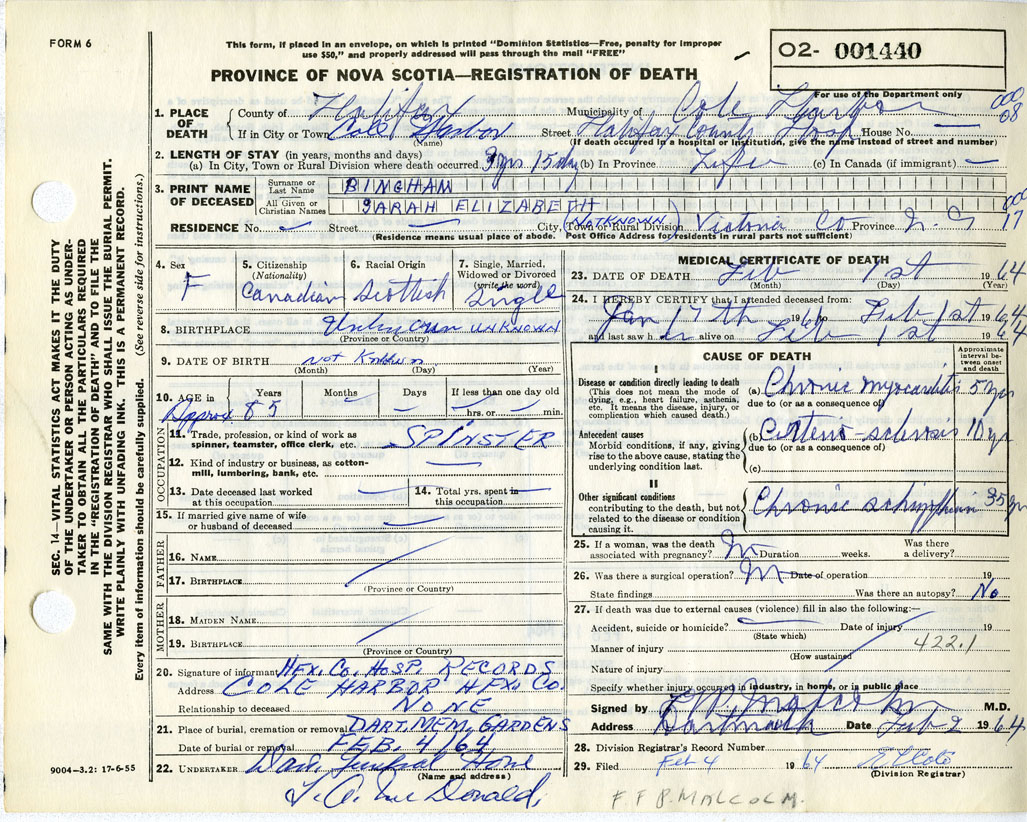 FORM 6
This form, if placed in an envelope, on which is printed "Dominion Statistics—Free, penalty for improper
use $50," and properly addressed will pass through the mail "FREE"
O2- 001440
For use of the Department only
PROVINCE OF NOVA SCOTIA—REGISTRATION OF DEATH
SEC. 14—VITAL STATISTICS ACT MAKES IT THE DUTY
OF THE UNDERTAKER OR PERSON ACTING AS UNDER-
TAKER TO OBTAIN ALL THE PARTICULARS REQUIRED
IN THE "REGISTRATION OF DEATH" AND TO FILE THE
SAME WITH THE DIVISION REGISTRAR WHO SHALL ISSUE THE BURIAL PERMIT.
WRITE PLAINLY WITH UNFADING INK. THIS IS A PERMANENT RECORD.
Every item of information should be carefully supplied. (See reverse side for instructions.)
1. PLACE OF DEATH
County of Halifax Municipality of Cole Harbor
000 08
If in City or Town Cole Harbor Street Halifax County Hosp House No. —
(Name) (If death occurred in a hospital or institution, give the name instead of street and number)
2. LENGTH OF STAY (in years, months and days)
(a) In City, Town or Rural Division where death occurred 15 (b) In Province Life (c) In Canada (if immigrant) —
3. PRINT NAME OF DECEASED
Surname or Last Name BINGHAM
All Given or Christian Names SARAH ELIZABETH
000 17
RESIDENCE No. — Street — City, Town or Rural Division (NOT KNOWN) Victoria Co Province N. S
(Residence means usual place of abode. Post Office Address for residents in rural parts not sufficient)
4. Sex F
5. Citizenship (Nationality) Canadian
6. Racial Origin Scottish
7. Single, Married, Widowed or Divorced (write the word) Single
8. BIRTHPLACE Unknown UNKNOWN
(Province or Country)
9. DATE OF BIRTH Not Known
(Month) (Day) (Year)
10. AGE in Years Months Days If less than one day old
Approx 85 — — hrs. or min.
OCCUPATION
11. Trade, profession, or kind of work as
spinner, teamster, office clerk, etc. SPINSTER
12. Kind of industry or business, as cotton-
mill, lumbering, bank, etc. —
13. Date deceased last worked at this occupation —
14. Total yrs. spent in this occupation
15. If married give name of wife
or husband of deceased —
FATHER
16. NAME
17. BIRTHPLACE
(Province or Country)
MOTHER
18. MAIDEN NAME
19. BIRTHPLACE
(Province or Country)
20. Signature of informant HFX. CO. HOSP. RECORDS
Address COLE HARBOR HFX. CO.
Relationship to deceased NONE
21. Place of burial, cremation or removal DART. MEM. GARDENS
Date of burial or removal FEB. 4/64
22. UNDERTAKER Dart. Funeral Home
(Name and address)
9004—3.2: 17-6-55
MEDICAL CERTIFICATE OF DEATH
23. DATE OF DEATH Feb 1st 1964
(Month) (Day) (Year)
24. I HEREBY CERTIFY that I attended deceased from:
Jan 17th 196 to Feb 1st 1964
and last saw h alive on Feb 1st 1964
CAUSE OF DEATH
Approximate interval between onset and death
I
Disease or condition directly leading to death
(This does not mean the mode of
dying, e.g., heart failure, asthenia,
etc. It means the disease, injury, or
complication which caused death.)
(a) Chronic myocarditis 5 yrs
due to (or as a consequence of)
Antecedent causes
Morbid conditions, if any, giving
rise to the above cause, stating the
underlying condition last.
(b) sclerosis 10 yr
due to (or as a consequence of)
(c)
II
Other significant conditions
contributing to the death, but not
related to the disease or condition
causing it.
Chronic schizophrenia 35 yr
25. If a woman, was the death
associated with pregnancy? No Duration weeks. Was there a delivery?
26. Was there a surgical operation? No Date of operation 19
State findings Was there an autopsy? No
27. If death was due to external causes (violence) fill in also the following:—
Accident, suicide or homicide? — Date of injury 19
(State which)
Manner of injury 422.1
(How sustained)
Nature of injury
Specify whether injury occurred in industry, in home, or in public place
Signed by M.D.
Address Dartmouth Date Feb 2 1964
28. Division Registrar's Record Number
29. Filed Feb 4 1964
(Division Registrar)
F.F.P. MALCOLM.